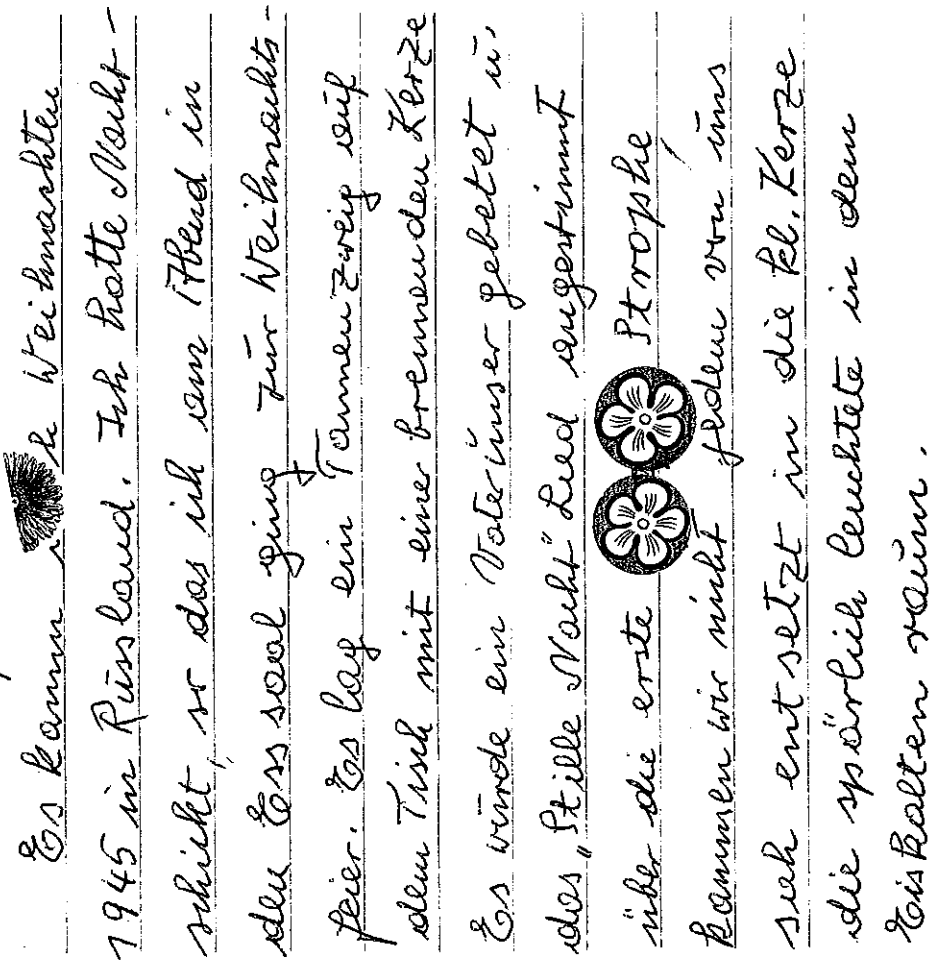 Es kamm Weihnachten
1945 in Russland. Ich hatte Nacht-
schicht, so das ich am Abend in
den Ess saal ging zur Weihnachts-
feier. Es lag ein Tannenzweig auf
dem Tisch mit einer brennenden Kerze
Es wurde ein Vaterunser gebetet u.
das „Stille Nacht" Lied angestimmt
über die erste Strophe
kammen wir nicht jeder von uns
sah entsetzt in die kl. Kerze
die spärlich leuchtete in dem
Eiskalten raum.